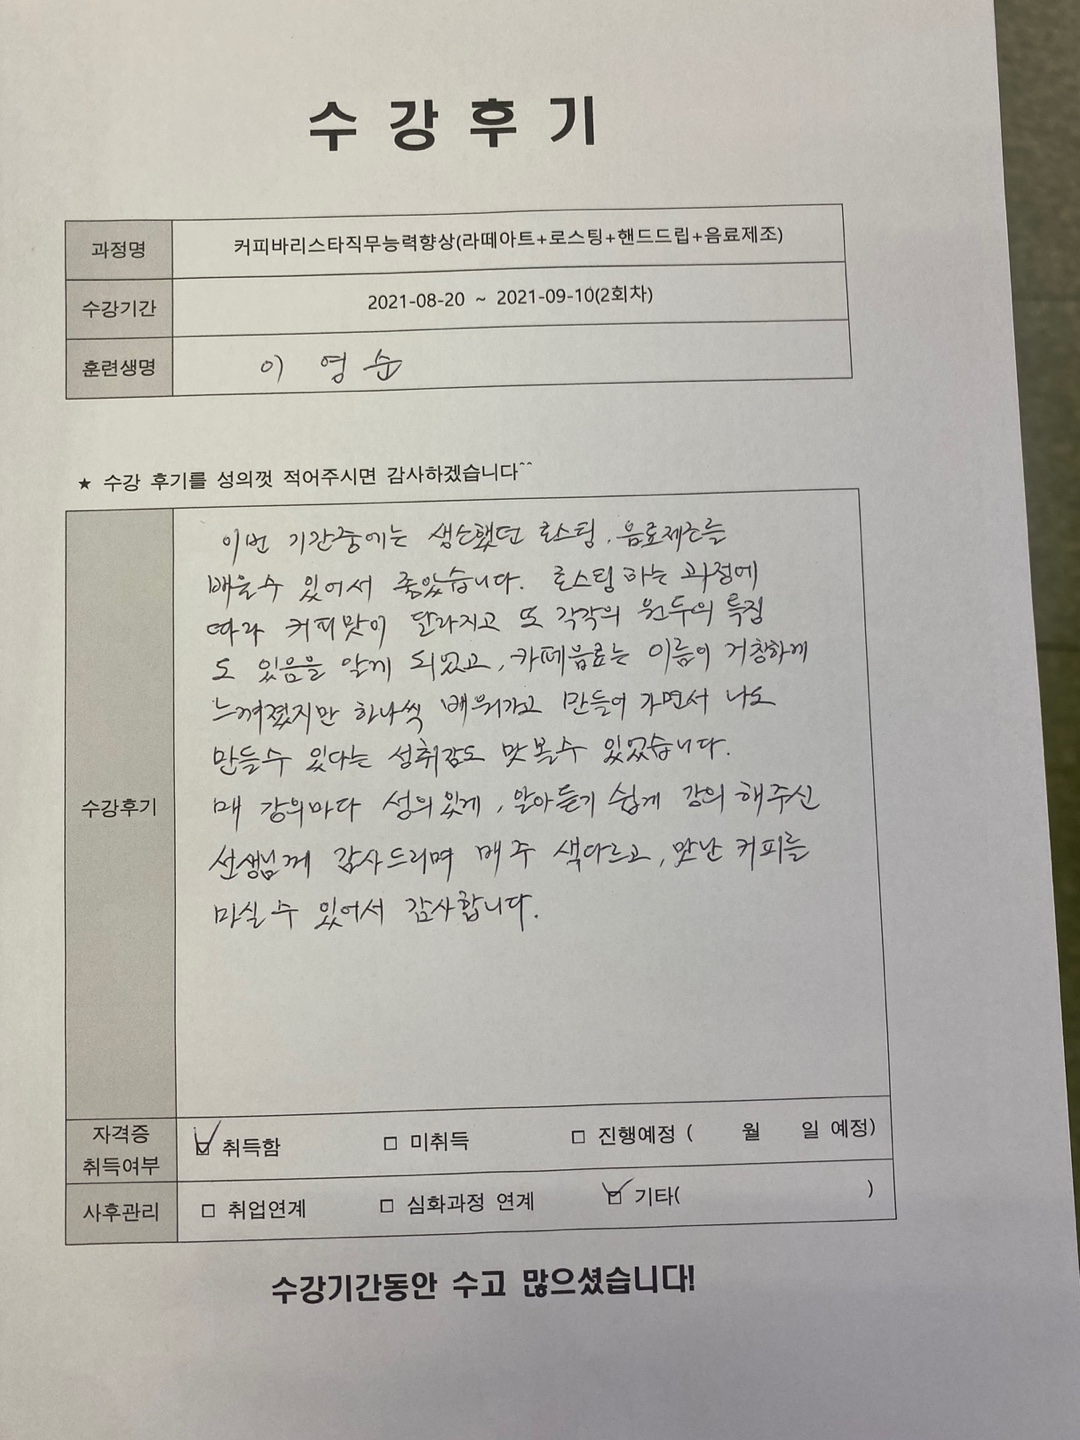 수 강 후 기
과정명 커피바리스타직무능력향상(라떼아트+로스팅+핸드드립+음료제조)
수강기간 2021-08-20 ~ 2021-09-10(2회차)
훈련생명 이 영 순
★ 수강 후기를 성의껏 적어주시면 감사하겠습니다^^
수강후기
이번 기간중에는 생소했던 로스팅, 음료제조를
배울수 있어서 좋았습니다. 로스팅하는 과정에
따라 커피맛이 달라지고 또 각각의 원두의 특징
도 있음을 알게 되었고, 카페음료는 이름이 거창하게
느껴졌지만 하나씩 배워가고 만들어 가면서 나도
만들수 있다는 성취감도 맛볼수 있었습니다.
매 강의마다 성의있게, 알아듣기 쉽게 강의 해주신
선생님께 감사드리며 매주 색다르고, 맛난 커피를
마실수 있어서 감사합니다.
자격증 취득여부 ☑ 취득함 □ 미취득 □ 진행예정 ( 월 일 예정)
사후관리 □ 취업연계 □ 심화과정 연계 ☑ 기타( )
수강기간동안 수고 많으셨습니다!